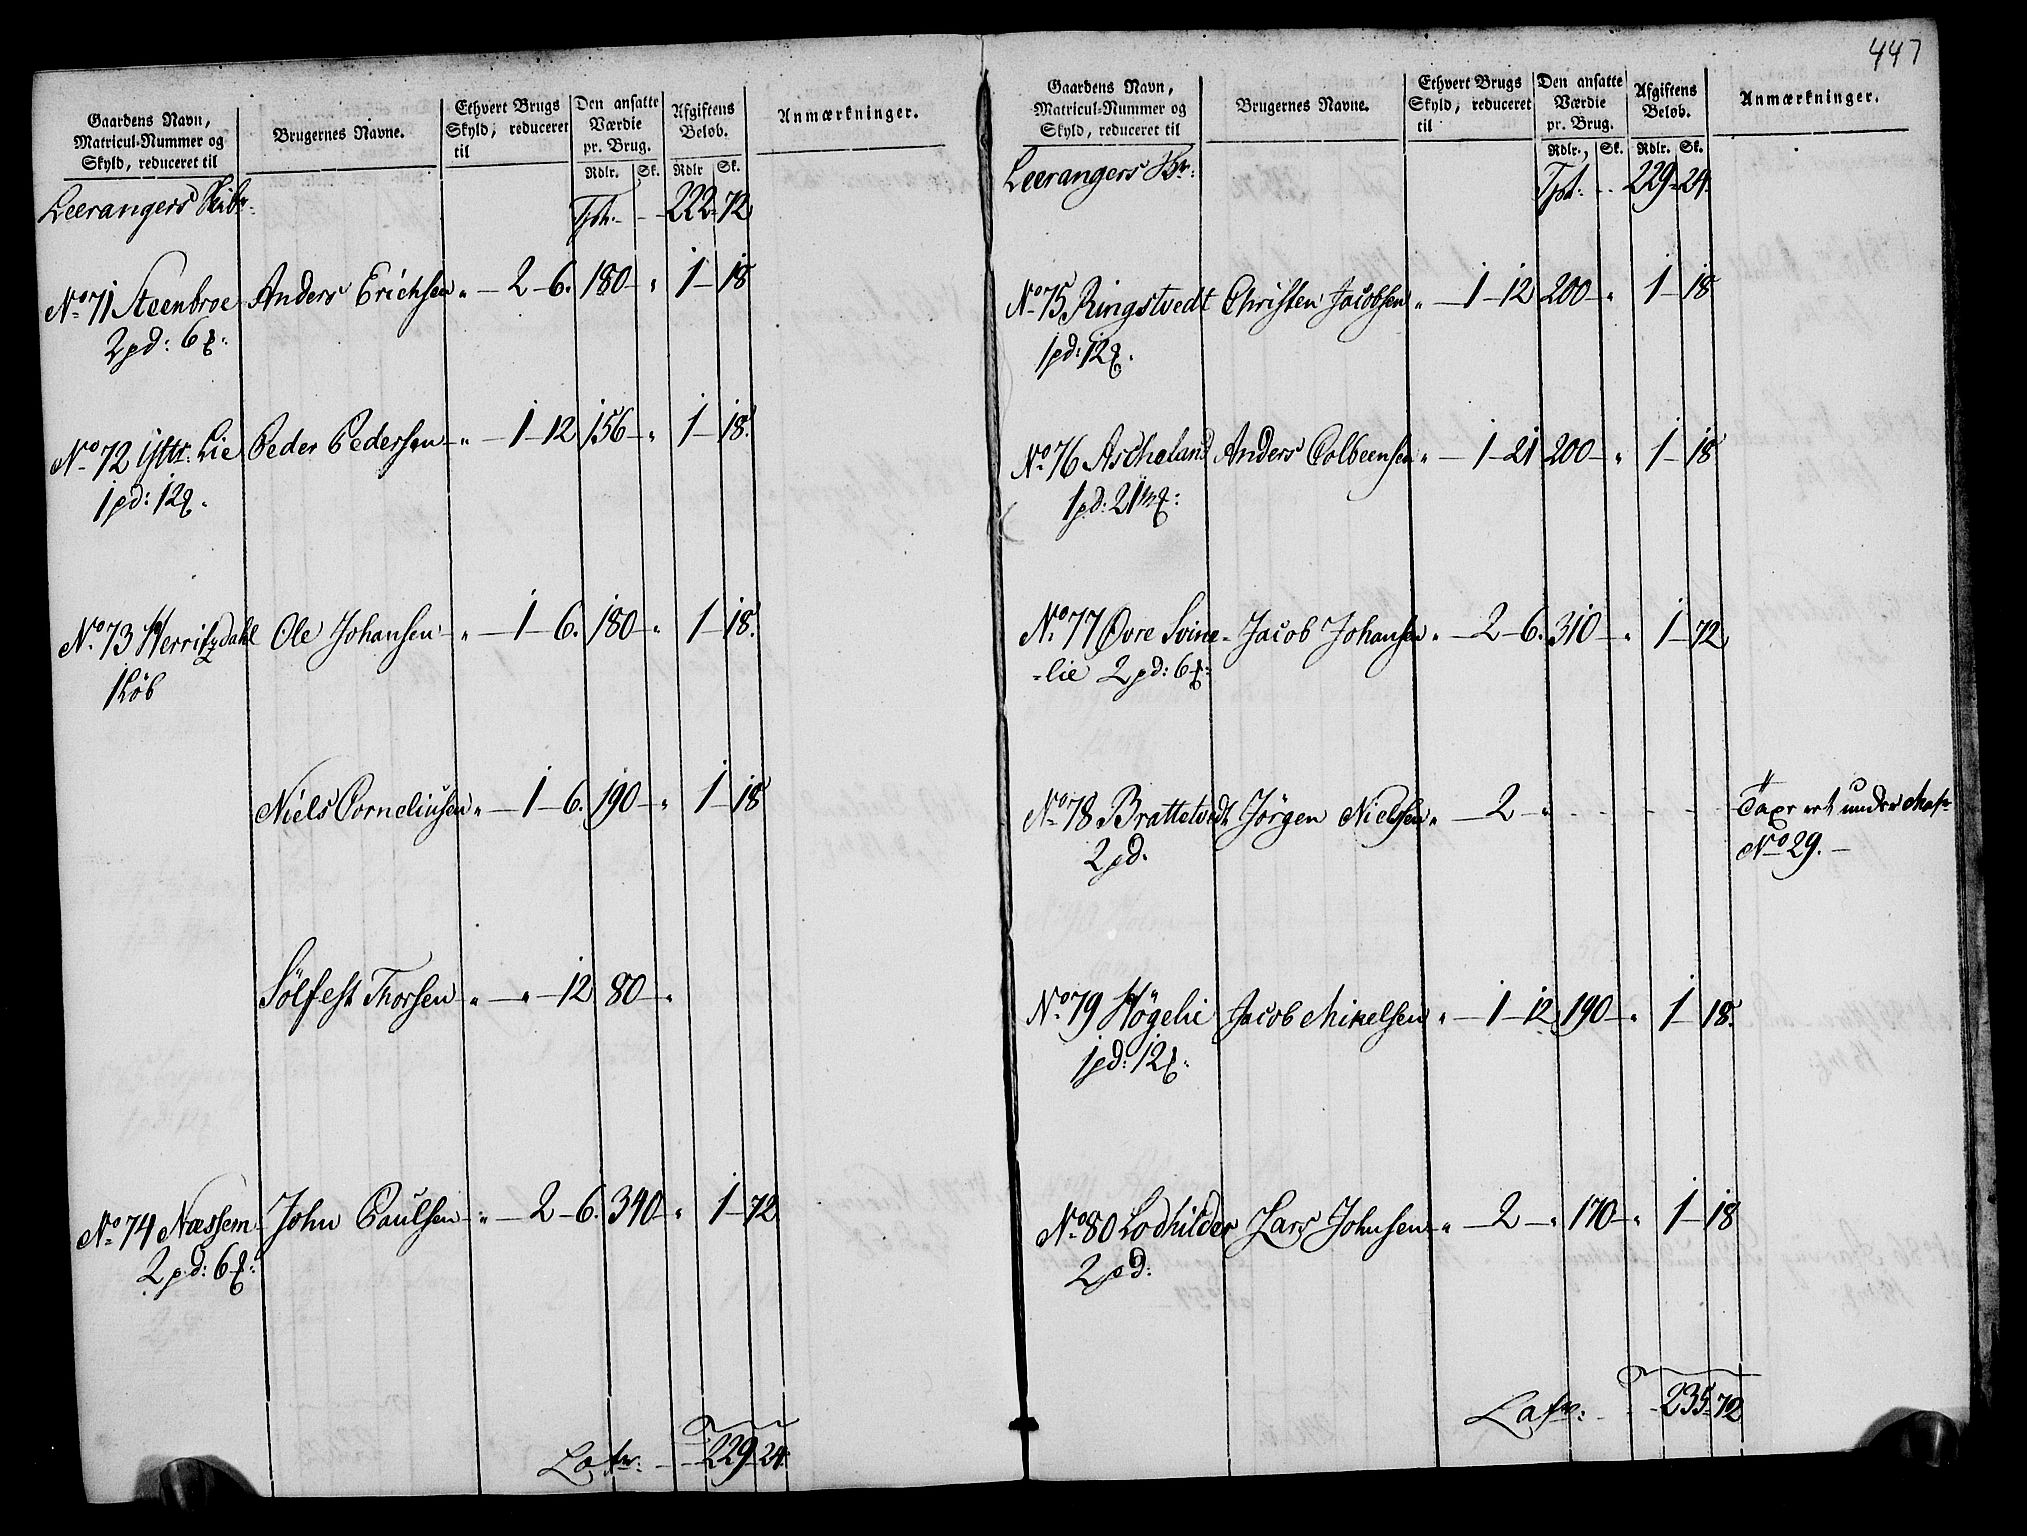 Gaardens Navn, Matricul-Nummer og Skyld, reduceret til
Brugernes Navne.
Ethvert Brugs Skyld, reduceret til
Den ansatte Værdie pr. Brug.
Rdlr. Sk.
Afgiftens Beløb.
Rdlr Sk.
Anmærkninger.
Leerangers Skibr.
Tpt. - - 222-72
No 71 Steenbroe Anders Erichsen " - 2-6. 180 - " 1-18
2pd: 6℔.
No 72 Yttr. Lie Peder Pedersen " - 1-12 156 - " 1-18.
1pd: 12℔.
No 73 Herritzdahl Ole Johansen - " - 1-6. 180 - " 1-18.
1 Löb
Niels Corneliusen " - 1-6. 190 - " 1-18
Sölfest Thorsen - " - " - 12 80 - "
No 74 Næssem John Paulsen - " - 2-6. 340 - " 1-72
2pd: 6℔:
Lat. - - 229-24.
447
Gaardens Navn, Matricul-Nummer og Skyld, reduceret til
Brugernes Navne.
Ethvert Brugs Skyld, reduceret til
Den ansatte Værdie pr. Brug.
Rdlr. Sk.
Afgiftens Beløb.
Rdlr. Sk.
Anmærkninger.
Leerangers Sbr:
Tpt. - - 229-24.
No 75 Ringstvedt Christen Jacobsen " - 1-12 200 - " 1-18
1pd: 12℔.
No 76 Ascheland Anders Colbeensen " - 1-21 200 - " 1-18
1pd: 21m℔:
No 77 Øvre Svine- Jacob Johansen " - 2-6. 310 - " 1-72
-lie 2pd: 6℔:
No 78 Brattetvedt Jörgen Nielsen " - 2 - " - - - - Taxeret under Mat
2pd. No 29. -
No 79 Högelie Jacob Mikelsen " - 1-12 190 - " 1-18.
1pd: 12℔.
No 80 Lodhilder Lars Johnsen - " - 2 - " 170 - " 1-18
2pd:
Lat: - - 235-72